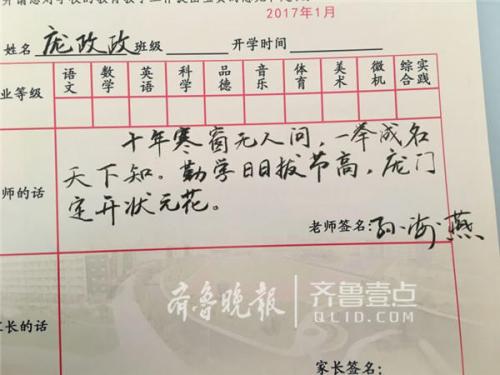 2017年1月
姓名 庞政政 班级 开学时间
业等级 语文 数学 英语 科学 品德 音乐 体育 美术 微机 综合实践
师的话
十年寒窗无人问，一举成名
天下知。勤学日日拔节高，庞门
定开状元花。
老师签名：孙海燕
齐鲁晚报 齐鲁壹点
QLID.COM
家长的话
家长签名：